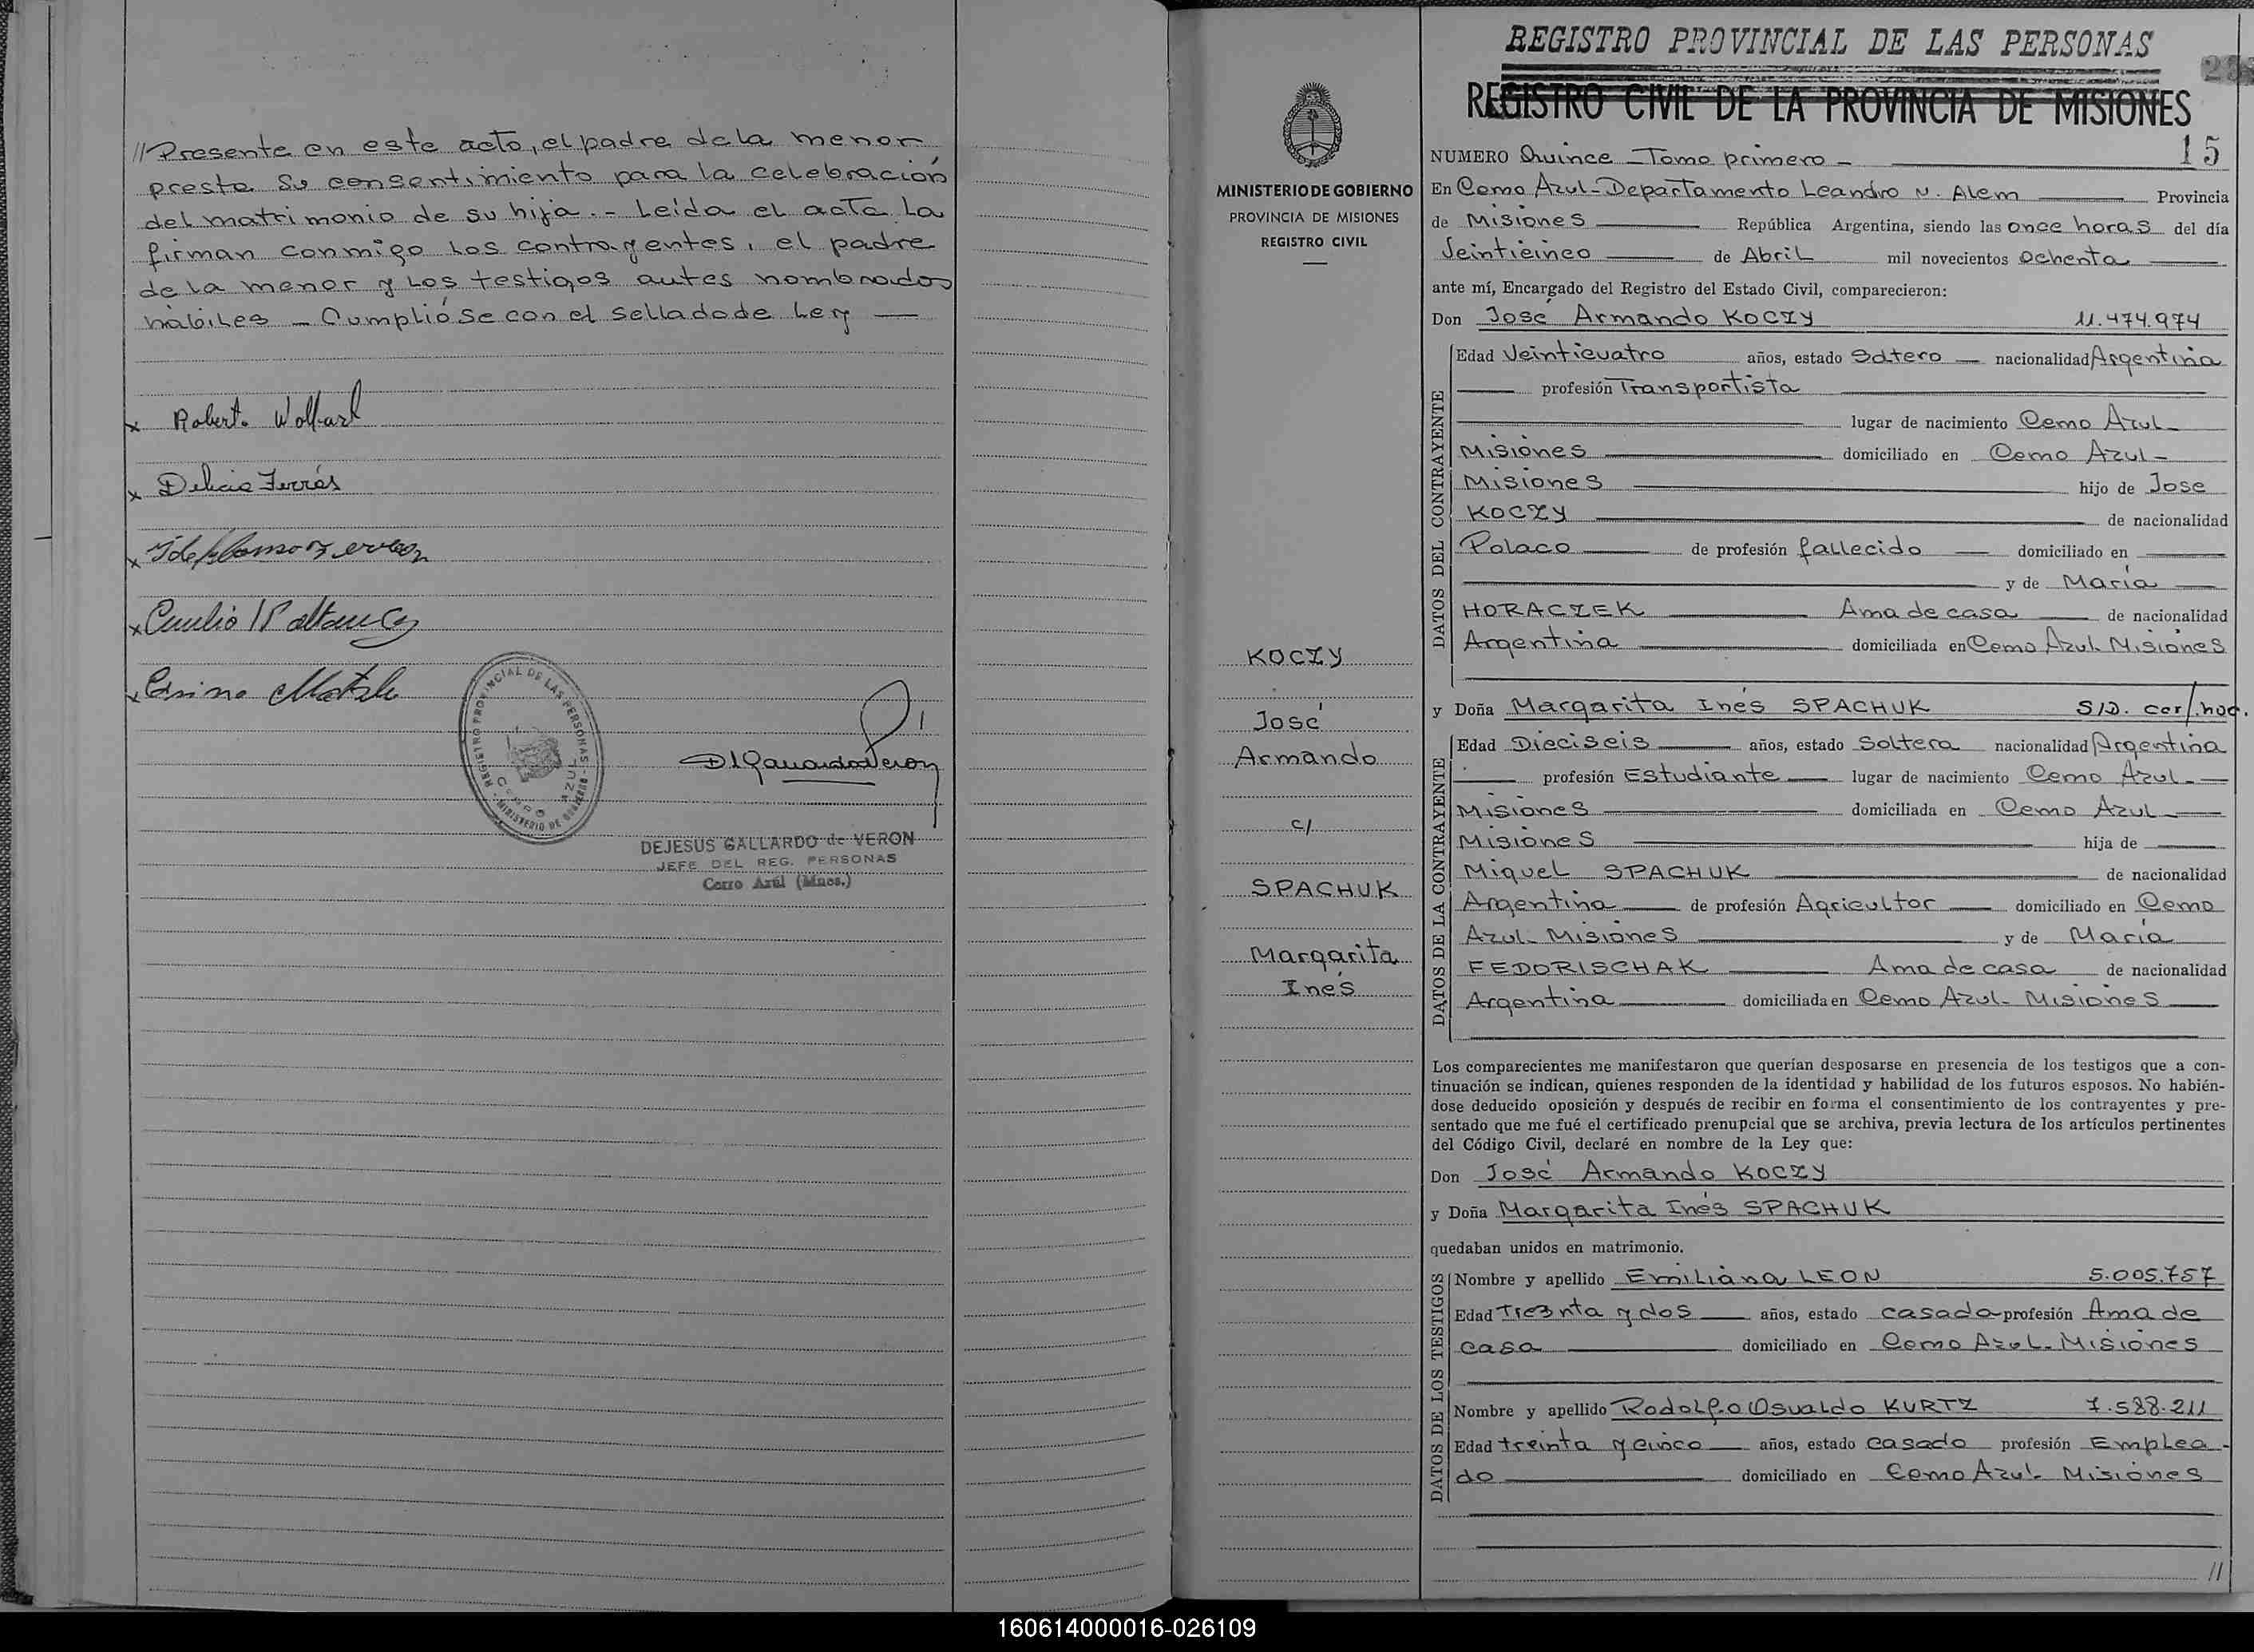 //Presente en este acto, el padre de la menor
presta su consentimiento para la celebración
del matrimonio de su hija.- Leída el acta La
firman conmigo los contrayentes, el padre
de la menor y los testigos antes nombrados
hábiles - Cumplióse con el sellado de Ley —
x Roberto
x Delicia
x
x
x
REGISTRO PROVINCIAL DE LAS PERSONAS - MINISTERIO DE GOBIERNO
CERRO AZUL
DEJESUS GALLARDO de VERON
JEFE DEL REG. PERSONAS
Cerro Azúl (Mnes.)
MINISTERIO DE GOBIERNO
PROVINCIA DE MISIONES
REGISTRO CIVIL
KOCZY
José
Armando
c/
SPACHUK
Margarita
Inés
REGISTRO PROVINCIAL DE LAS PERSONAS
REGISTRO CIVIL DE LA PROVINCIA DE MISIONES
15
NUMERO Quince - Tomo primero -
En Cerro Azul - Departamento Leandro N. Alem Provincia
de Misiones República Argentina, siendo las once horas del día
Veinticinco de Abril mil novecientos ochenta
ante mí, Encargado del Registro del Estado Civil, comparecieron:
Don José Armando KOCZY 11.474.974
DATOS DEL CONTRAYENTE
Edad Veinticuatro años, estado Soltero nacionalidad Argentina
profesión Transportista
lugar de nacimiento Cerro Azul-
Misiones domiciliado en Cerro Azul-
Misiones hijo de Jose
KOCZY de nacionalidad
Polaco de profesión fallecido domiciliado en
y de María
HORACZEK Ama de casa de nacionalidad
Argentina domiciliada en Cerro Azul Misiones
y Doña Margarita Inés SPACHUK S/D. cer/.nog.
DATOS DE LA CONTRAYENTE
Edad Dieciseis años, estado Soltera nacionalidad Argentina
profesión Estudiante lugar de nacimiento Cerro Azul-
Misiones domiciliada en Cerro Azul-
Misiones hija de
Miguel SPACHUK de nacionalidad
Argentina de profesión Agricultor domiciliado en Cerro
Azul- Misiones y de María
FEDORISCHAK Ama de casa de nacionalidad
Argentina domiciliada en Cerro Azul- Misiones
Los comparecientes me manifestaron que querían desposarse en presencia de los testigos que a con-
tinuación se indican, quienes responden de la identidad y habilidad de los futuros esposos. No habién-
dose deducido oposición y después de recibir en forma el consentimiento de los contrayentes y pre-
sentado que me fué el certificado prenupcial que se archiva, previa lectura de los artículos pertinentes
del Código Civil, declaré en nombre de la Ley que:
Don José Armando KOCZY
y Doña Margarita Inés SPACHUK
quedaban unidos en matrimonio.
DATOS DE LOS TESTIGOS
Nombre y apellido Emiliana LEON 5.005.757
Edad treinta y dos años, estado casada profesión Ama de
casa domiciliado en Cerro Azul- Misiones
Nombre y apellido Rodolfo Osvaldo KURTZ 7.588.211
Edad treinta y cinco años, estado casado profesión Emplea-
do domiciliado en Cerro Azul- Misiones
//
160614000016-026109